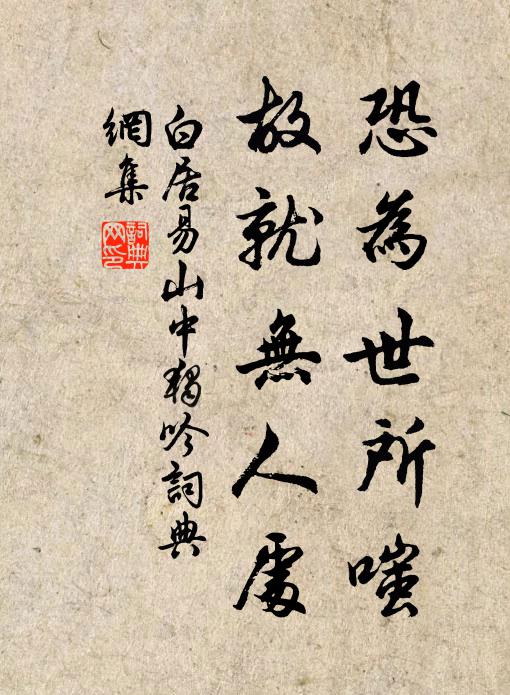 恐為世所嗤
故就無人處
白居易山中獨吟詞典
網集
詞典
网印